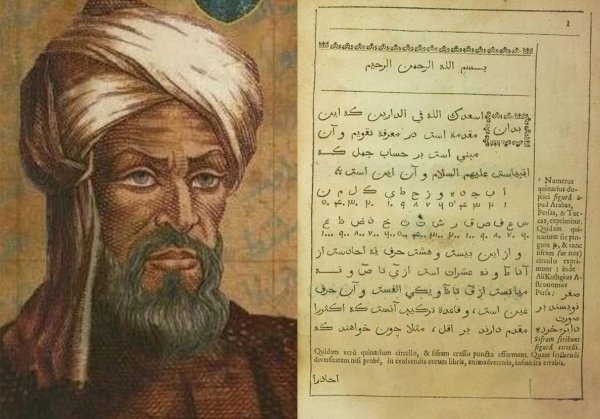 1
بسم الله الرحمن الرحيم
بدان اسعدك الله في الدارين كه اين
مقدمه است در معرفة تقويم و آن
مبني است بر حساب جمل كه
عليهم السلام و آن اين است
ا ب ج د ه و ز ح ط ي ك ل م ن
س ع ف ص ق ر ش ت ث خ ذ ض ظ غ
و از اين بيست و هشت حرف نه احادست از
آ تا ط و نه عشرات است از ي تا ص و نه
مياتست از ق تا ظ و يكي الفست و آن حرف
غين است، و قاعده تركيب آنست كه اكثر را
مقدم دارند بر اقل، مثلا چون خواهند كه
Numerus
quinarius du-
plici figurâ a-
pud Arabas,
Persas, & Tur-
cas, exprimitur.
Quidam qui-
narium sic pin-
gunt & nunc
ut nos)
circulo expri-
munt : inde
Ali Koshgius A-
stronomus
Persa:
صفر
نويسند بر
صورت
دايره خرده
sifram scribunt
figurâ circelli.
Quidam verò quinarium circello, & sifram crasso puncto effitement. Quam scribendi
diversitatem nisi probé, in evolvendis eorum libris, animadverteris, infinities errabis.
احاد را